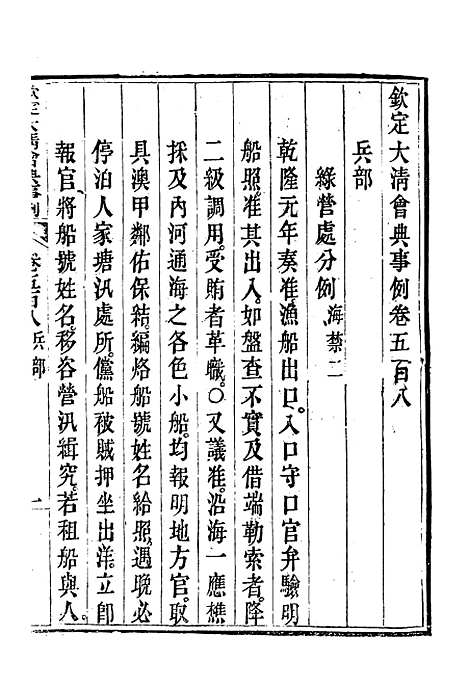 欽定大清會典事例卷五百八
兵部
綠營處分例 海禁二
乾隆元年奏准漁船出口入口守口官弁驗明
船照准其出入如盤查不實及借端勒索者降
二級調用受賄者革職○又議准沿海一應樵
採及內河通海之各色小船均報明地方官取
具澳甲鄰佑保結編烙船號姓名給照遇晚必
停泊人家塘汛處所儻船被賊押坐出洋立卽
報官將船號姓名移咨營汛緝究若租船與人
欽定大清會典事例 卷五百八 兵部 一